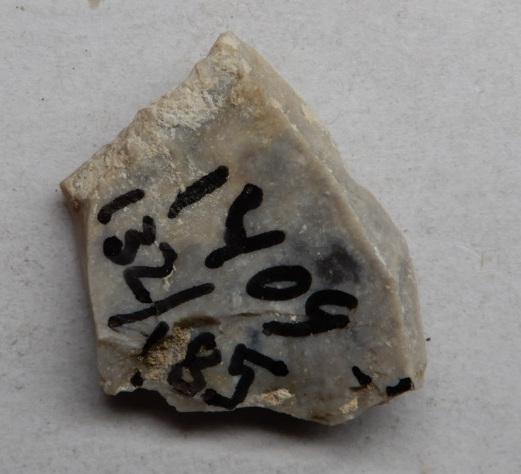 1409
132/185